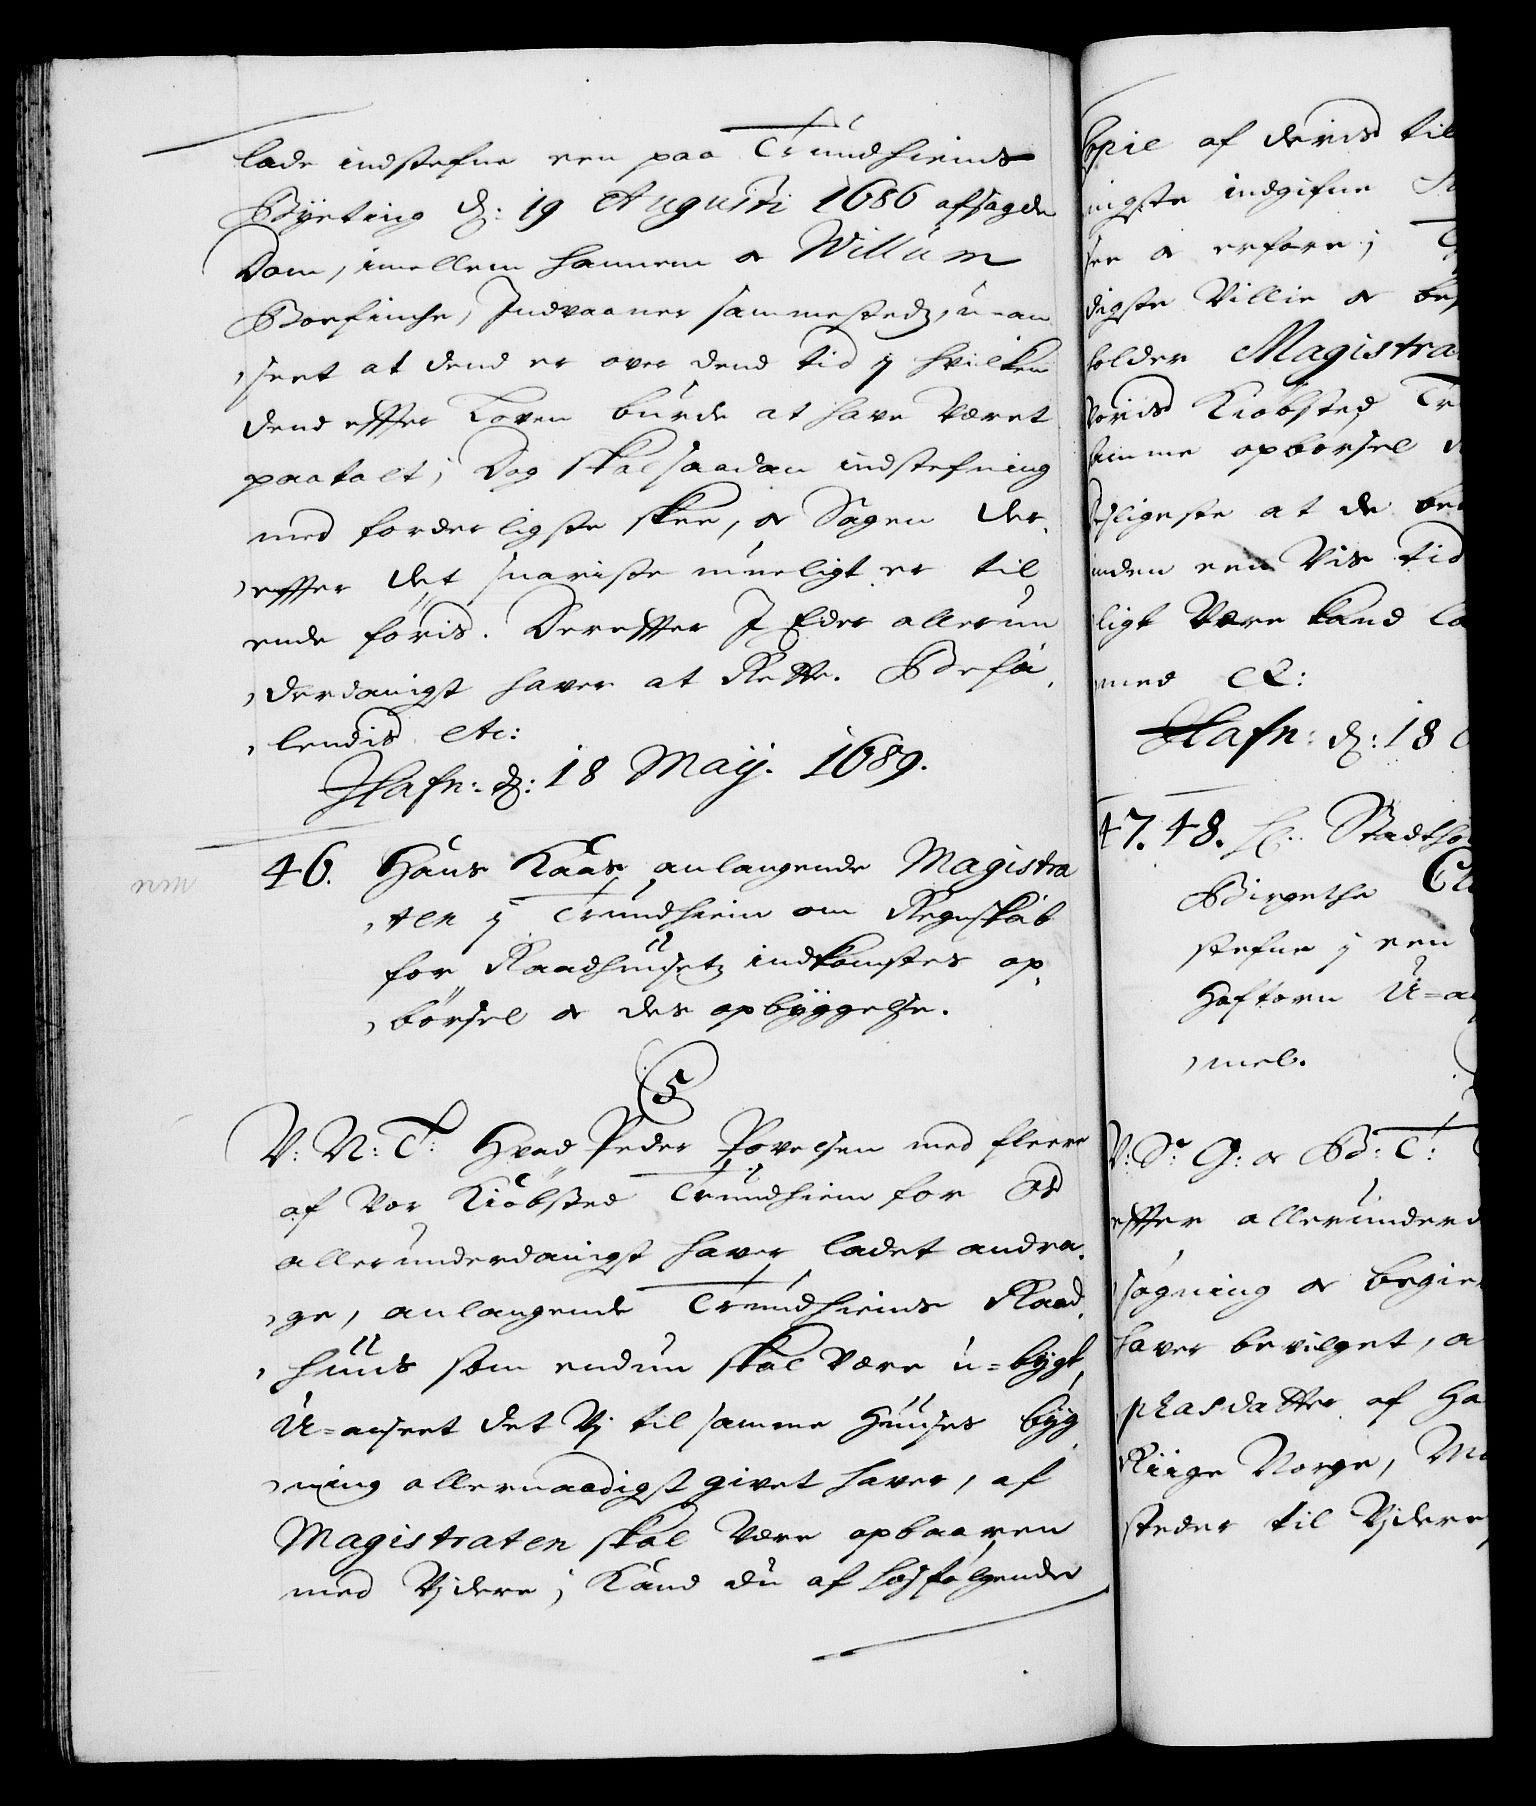 lade indstefne een paa Trundhiembs
Byeting d: 19 Augusti 1686 afsagde
Dom, imellem hannem oc Willum
Borfinche, Indvaaner sammestedz, u-an
seet at dend er over dend tid i hvilken
dend effter Loven burde at have Været
paatalt; Dog skal saadan indstefning
med forderligste skee, oc Sagen der
effter det snariste mueligt er til
ende føris. Dereffter I Eder allerun
derdanigst haver at Rette. Befa
lendis etc:
Hafn: d: 18 Maij. 1689.
46. Hans Kaas anlangende Magistra
ten i Trundhiem om Regnskab
for Raadhuusetz indkomstes op
børsel oc des opbyggelse.
C5
V: N: T: Hvad Peder Povelsen med fleere
af Vor Kiøbsted Trundhiem for Os
allerunderdanigst haver ladet andra
ge, anlangende Trundhiems Raad
huus som endnu skal Være u=bygt,
U=anseet det Vj til samme Huuses byg
ning allernaadigst givet haver, af
Magistraten skal Være opbaaren
med Vjdere; Kand du af hosfølgende
Copie af deris til
nigste indgifne
see oc erfare;
digste Villie oc
holder Magistra
Voris Kiøbsted Tr
samme opbørsel
ligeste at de
inden een Vis tid
ligt Være kand la
med etc:
Hafn: d: 18
47. 48. Stadthol
Birgethe
stefne i een
Hoftorn U=a
mel.
V: S: G: oc B: T:
effter allerunderd
søgning oc begier
haver bevilget, a
phasdatter af Ha
Riige Norge,
steder til Vjdere